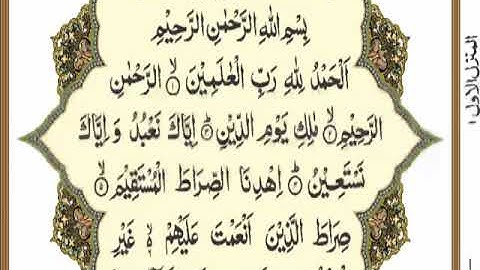 بِسْمِ اللهِ الرَّحْمٰنِ الرَّحِيْمِ
اَلْحَمْدُ لِلّٰهِ رَبِّ الْعٰلَمِيْنَ ۙ۱ الرَّحْمٰنِ
الرَّحِيْمِ ۙ۲ مٰلِكِ يَوْمِ الدِّيْنِ ؕ۳ اِيَّاكَ نَعْبُدُ وَ اِيَّاكَ
نَسْتَعِيْنُ ؕ۴ اِهْدِنَا الصِّرَاطَ الْمُسْتَقِيْمَ ۙ۵
صِرَاطَ الَّذِيْنَ اَنْعَمْتَ عَلَيْهِمْ ۙ۬ غَيْرِ
المنزل الاول ۱